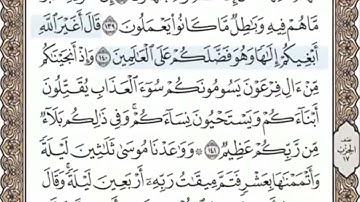 مَّا هُمْ فِيهِ وَبَٰطِلٌ مَّا كَانُوا۟ يَعْمَلُونَ ١٣٩ قَالَ أَغَيْرَ ٱللَّهِ
أَبْغِيكُمْ إِلَٰهًا وَهُوَ فَضَّلَكُمْ عَلَى ٱلْعَٰلَمِينَ ١٤٠ وَإِذْ أَنجَيْنَٰكُم
مِّنْ ءَالِ فِرْعَوْنَ يَسُومُونَكُمْ سُوٓءَ ٱلْعَذَابِ يُقَتِّلُونَ
أَبْنَآءَكُمْ وَيَسْتَحْيُونَ نِسَآءَكُمْ وَفِى ذَٰلِكُم بَلَآءٌ
مِّن رَّبِّكُمْ عَظِيمٌ ١٤١ ۞ وَوَٰعَدْنَا مُوسَىٰ ثَلَٰثِينَ لَيْلَةً
وَأَتْمَمْنَٰهَا بِعَشْرٍ فَتَمَّ مِيقَٰتُ رَبِّهِۦٓ أَرْبَعِينَ لَيْلَةً وَقَالَ
الحزب
١٧